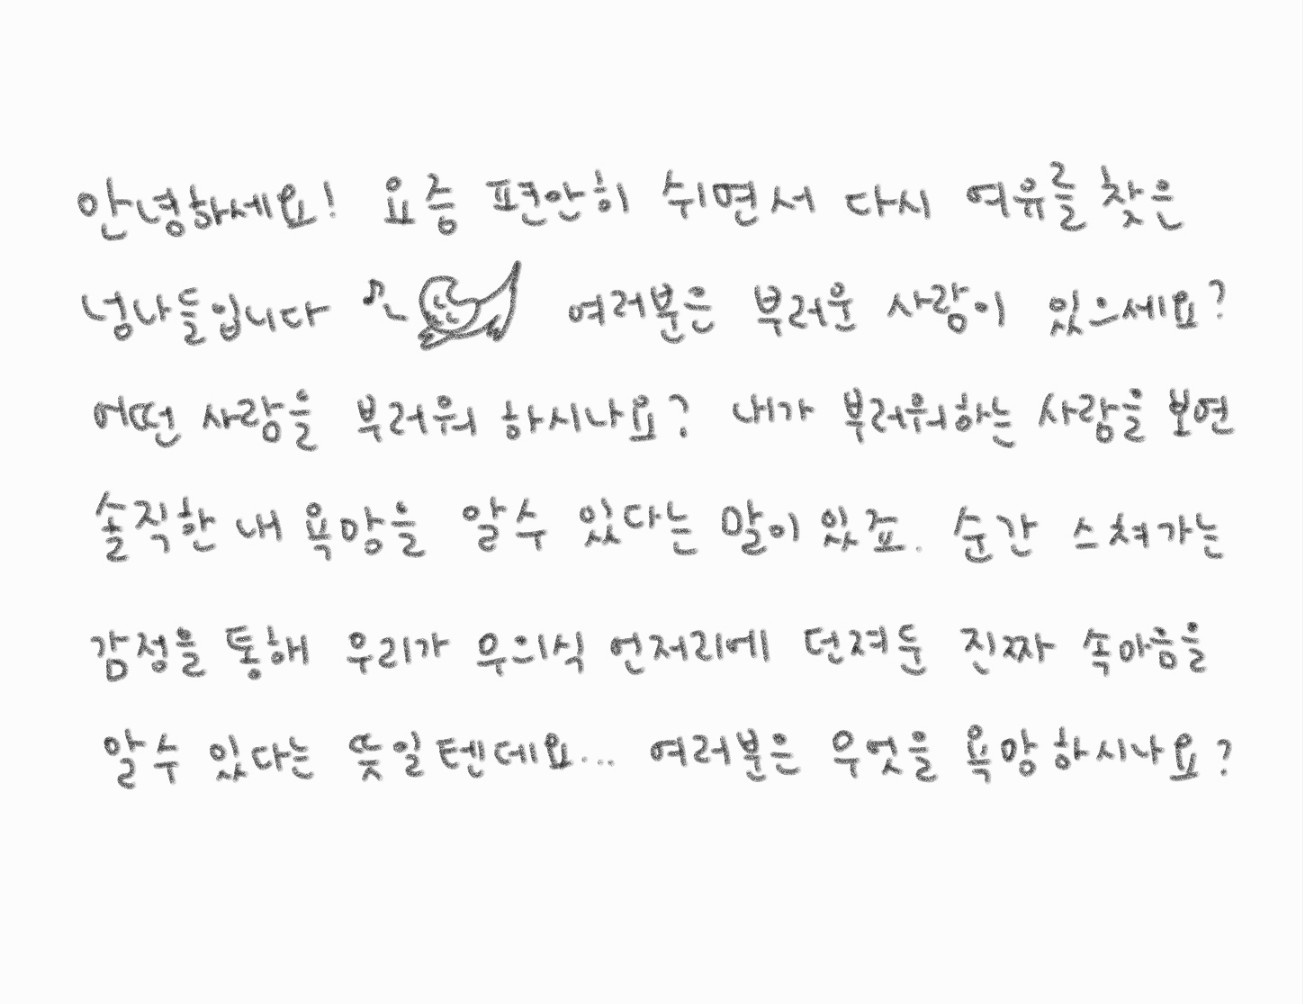 안녕하세요! 요즘 편안히 쉬면서 다시 여유를 찾은
넝나들입니다 ♪ 여러분은 부러운 사람이 있으세요?
어떤 사람을 부러워 하시나요? 내가 부러워하는 사람을 보면
솔직한 내 욕망을 알수 있다는 말이 있죠. 순간 스쳐가는
감정을 통해 우리가 무의식 언저리에 던져둔 진짜 속마음을
알수 있다는 뜻일텐데요... 여러분은 무엇을 욕망하시나요?